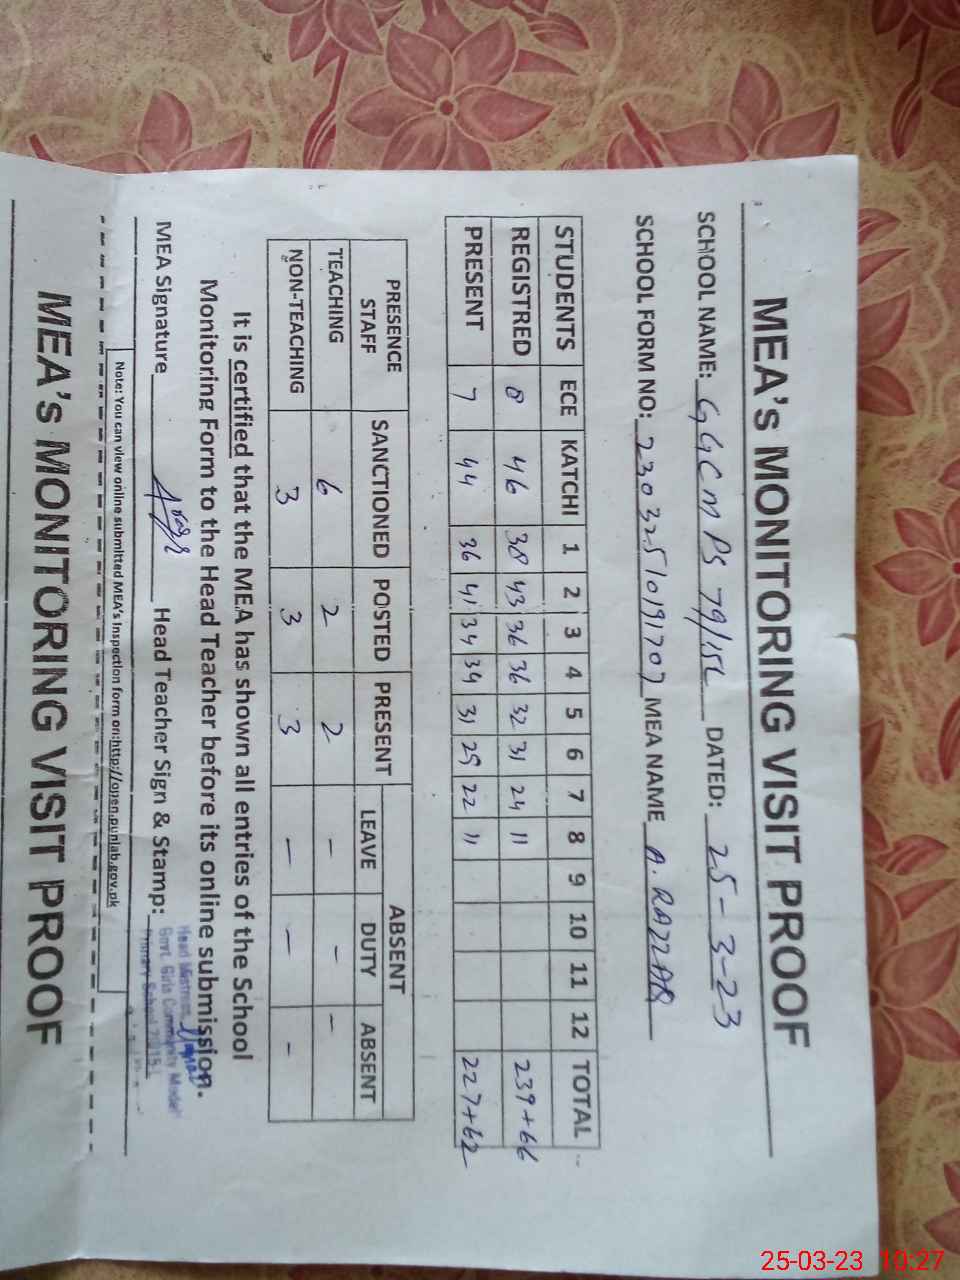 MEA's MONITORING VISIT PROOF
SCHOOL NAME: GGCMPS 79/15L DATED: 25-3-23
SCHOOL FORM NO: 23032510191707 MEA NAME A. RAZZAQ
STUDENTS ECE KATCHI 1 2 3 4 5 6 7 8 9 10 11 12 TOTAL
REGISTRED 8 46 38 43 36 36 32 31 24 11 239+66
PRESENT 7 44 36 41 34 34 31 29 22 11 227+62
PRESENCE STAFF SANCTIONED POSTED PRESENT ABSENT
LEAVE DUTY ABSENT
TEACHING 6 2 2 - - -
NON-TEACHING 3 3 3 - - -
It is certified that the MEA has shown all entries of the School
Monitoring Form to the Head Teacher before its online submission.
MEA Signature Head Teacher Sign & Stamp:
Head Mistress
Govt. Girls Community Model
Primary School 79/15L
Note: You can view online submitted MEA's Inspection form on:http://open.punjab.gov.pk
MEA's MONITORING VISIT PROOF
25-03-23 10:27